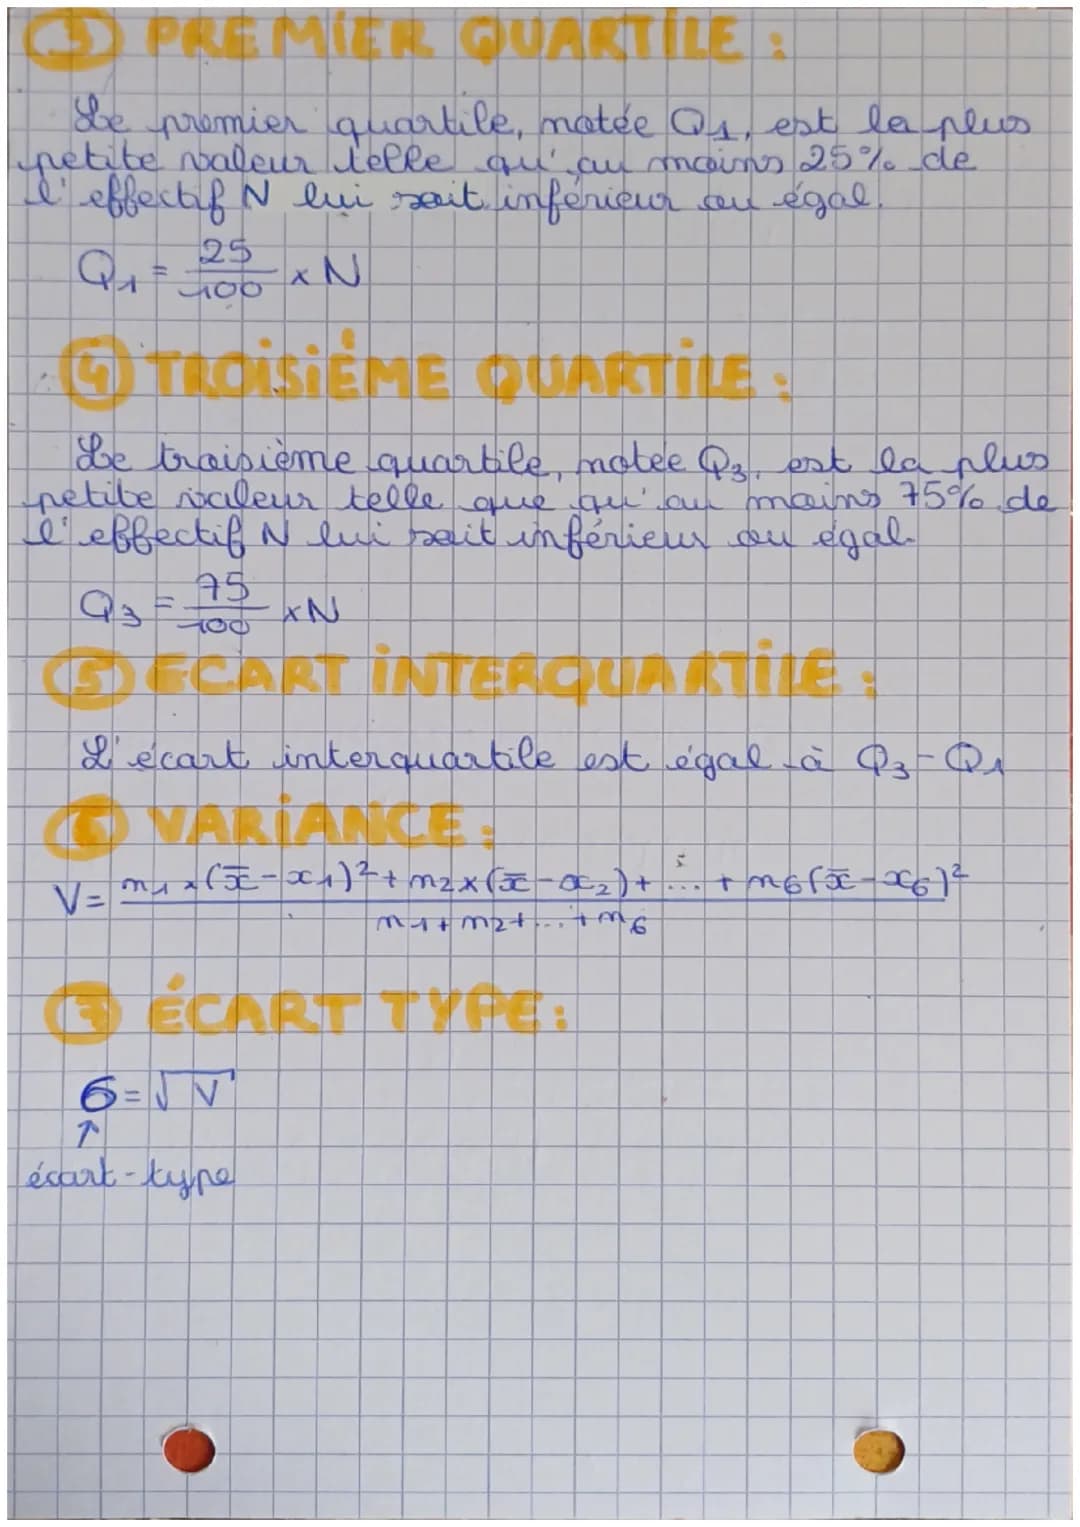 ③ PREMIER QUARTILE :
Le premier quartile, notée Q1, est la plus
petite valeur telle qu'au moins 25% de
l'effectif N lui soit inférieur ou égal.
Q1 = 25/100 x N
④ TROISIÉME QUARTILE :
Le troisième quartile, notée Q3, est la plus
petite valeur telle que qu'au moins 75% de
l'effectif N lui soit inférieur ou égal.
Q3 = 75/100 x N
⑤ ECART INTERQUARTILE :
L'écart interquartile est égal à Q3-Q1
⑥ VARIANCE :
V = n1 x (x̄ - x1)² + n2 x (x̄ - x2) + ... + n6 (x̄ - x6)²
n1 + n2 + ... + n6
⑦ ÉCART TYPE :
σ = √V
↑
écart-type